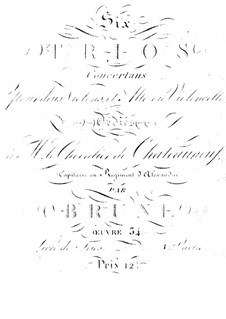 Six
TRIOS
Concertans
Pour deux Violons et Alto ou Violoncelle
Dédiés
à Mr. le Chevalier de Chateauneuf
Capitaine au Régiment d'Alexandrie
PAR
BRUNI
ŒUVRE 34
Livre de Trios. A Paris
Prix 12